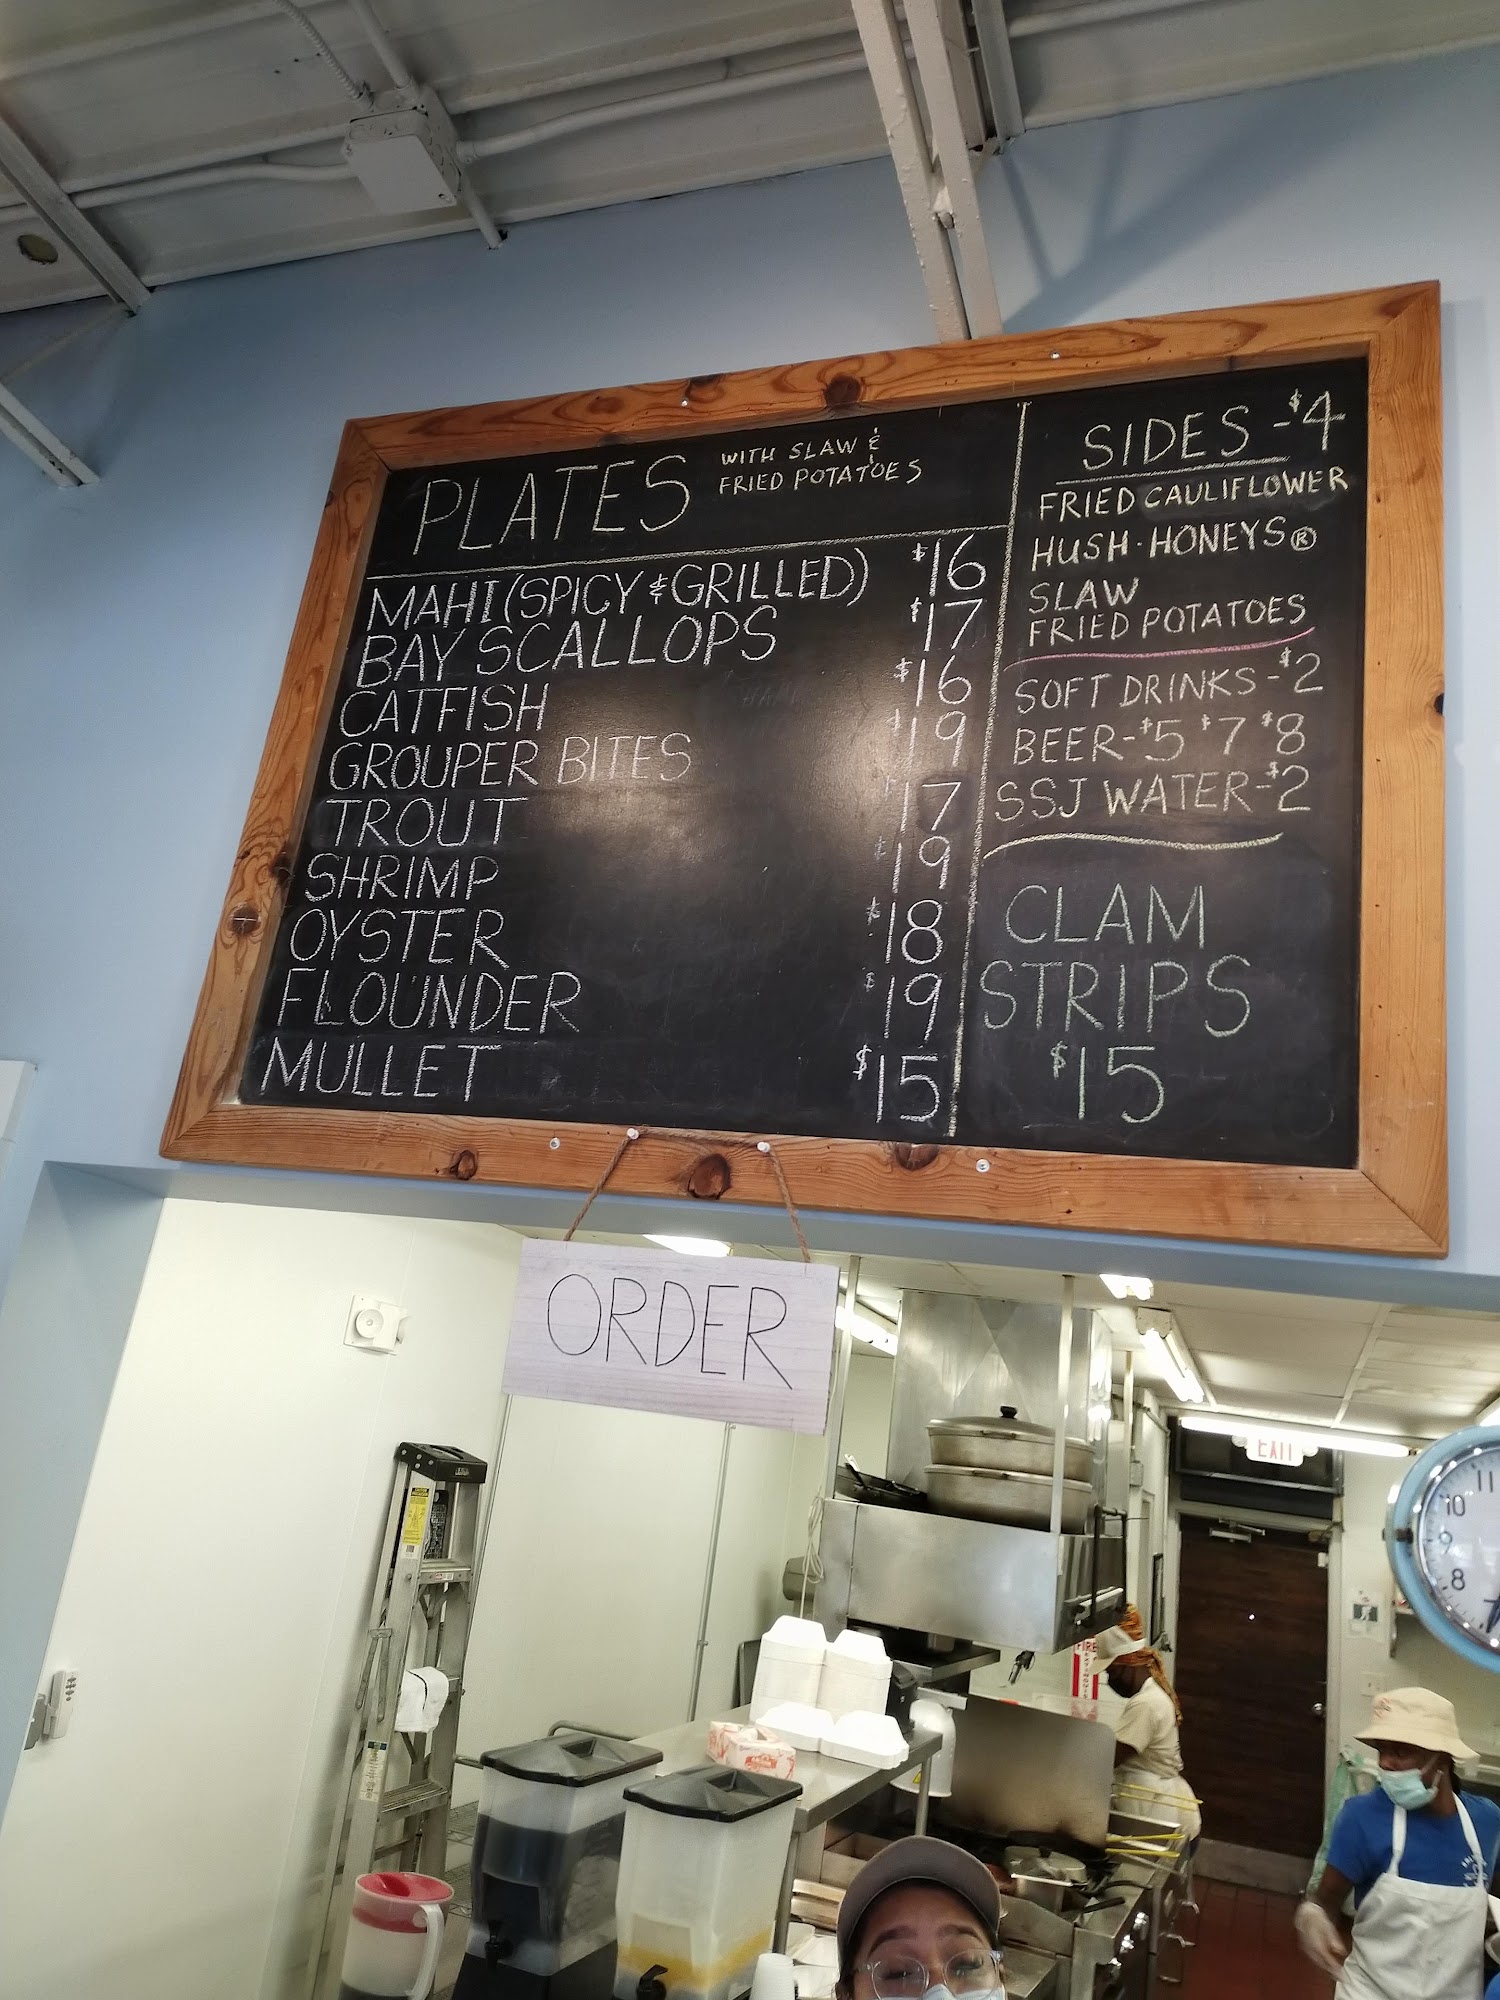 PLATES WITH SLAW &
FRIED POTATOES
MAHI (SPICY & GRILLED) $16
BAY SCALLOPS $17
CATFISH $16
GROUPER BITES $19
TROUT $17
SHRIMP $19
OYSTER $18
FLOUNDER $19
MULLET $15
SIDES - $4
FRIED CAULIFLOWER
HUSH-HONEYS®
SLAW
FRIED POTATOES
SOFT DRINKS - $2
BEER - $5 $7 $8
SSJ WATER - $2
CLAM
STRIPS
$15
ORDER
EXIT
FIRE
11
10
9
8
7